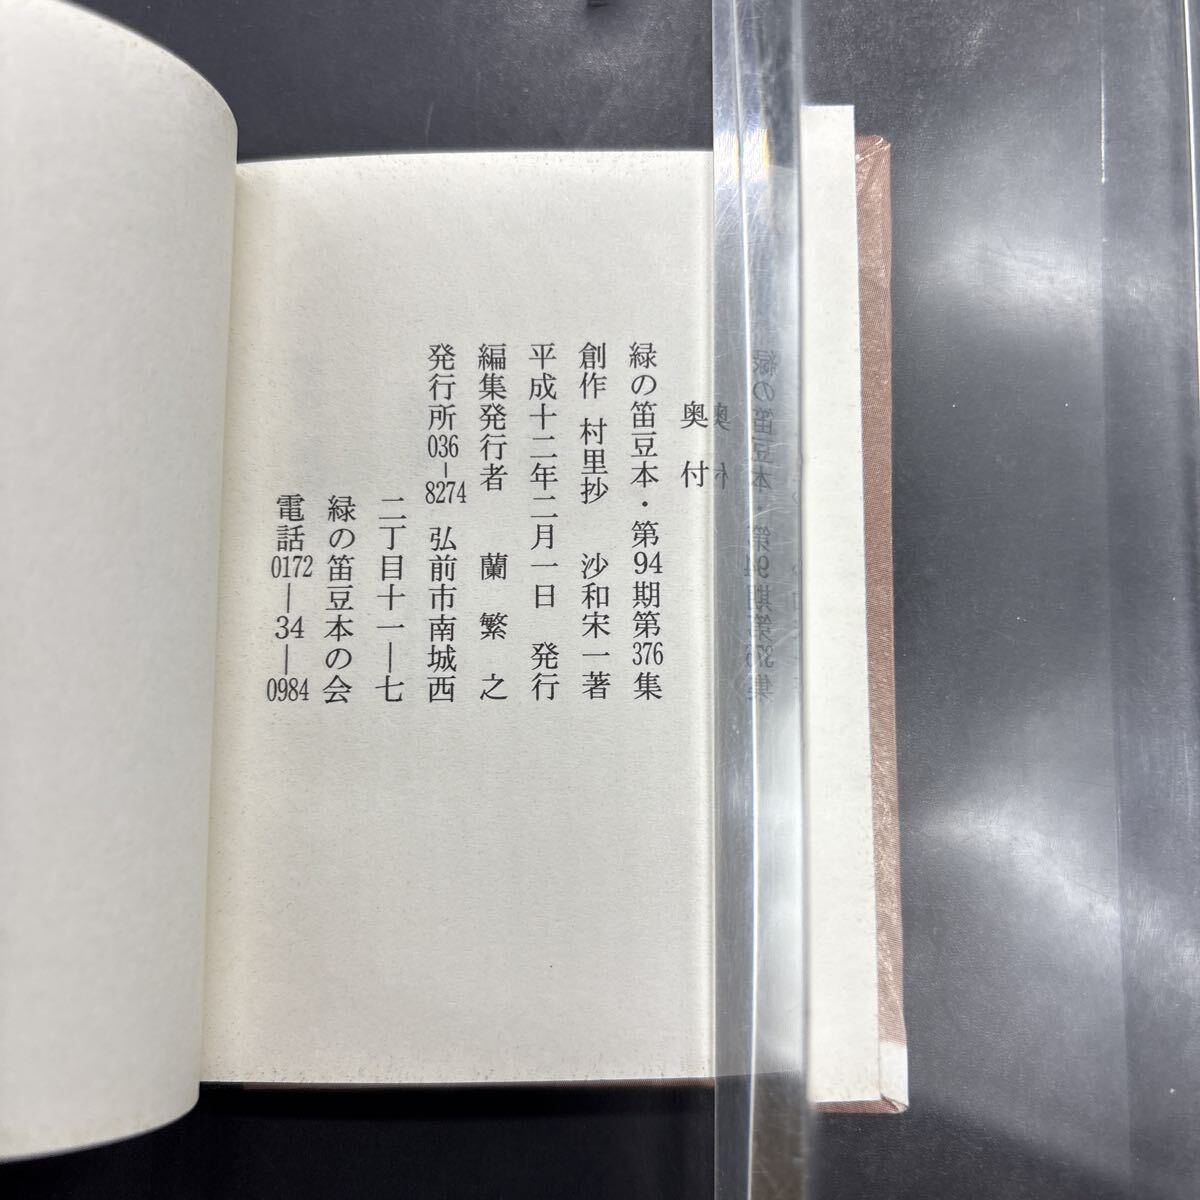 奥付
緑の笛豆本・第94期第376集
創作 村里抄 沙和宋一著
平成十二年二月一日 発行
編集発行者 蘭繁之
発行所 036-8274 弘前市南城西
二丁目十一―七
緑の笛豆本の会
電話 0172―34―0984